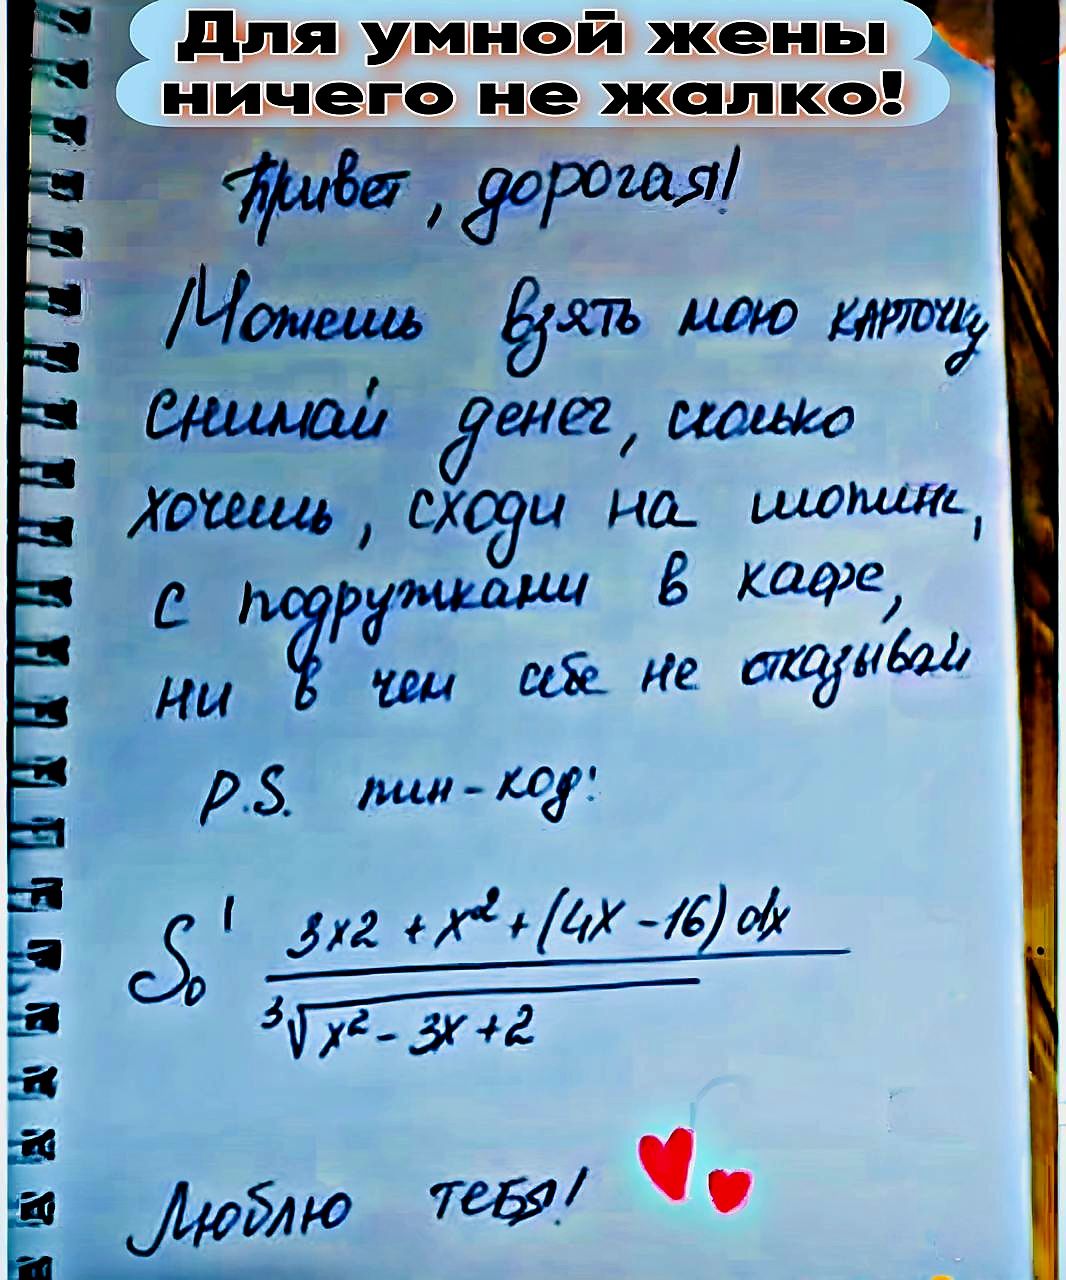 Для умной жены
ничего не жалко!
Привет, дорогая!
Можешь взять мою карточку
снимай денег, сколько
хочешь, сходи на шопинг,
с подружками в кафе,
ни в чем себе не отказывай
P.S. пин-код:
S₀¹ 3x2 + x² + (4x - 16) dx
³√x² - 3x + 2
Люблю тебя!